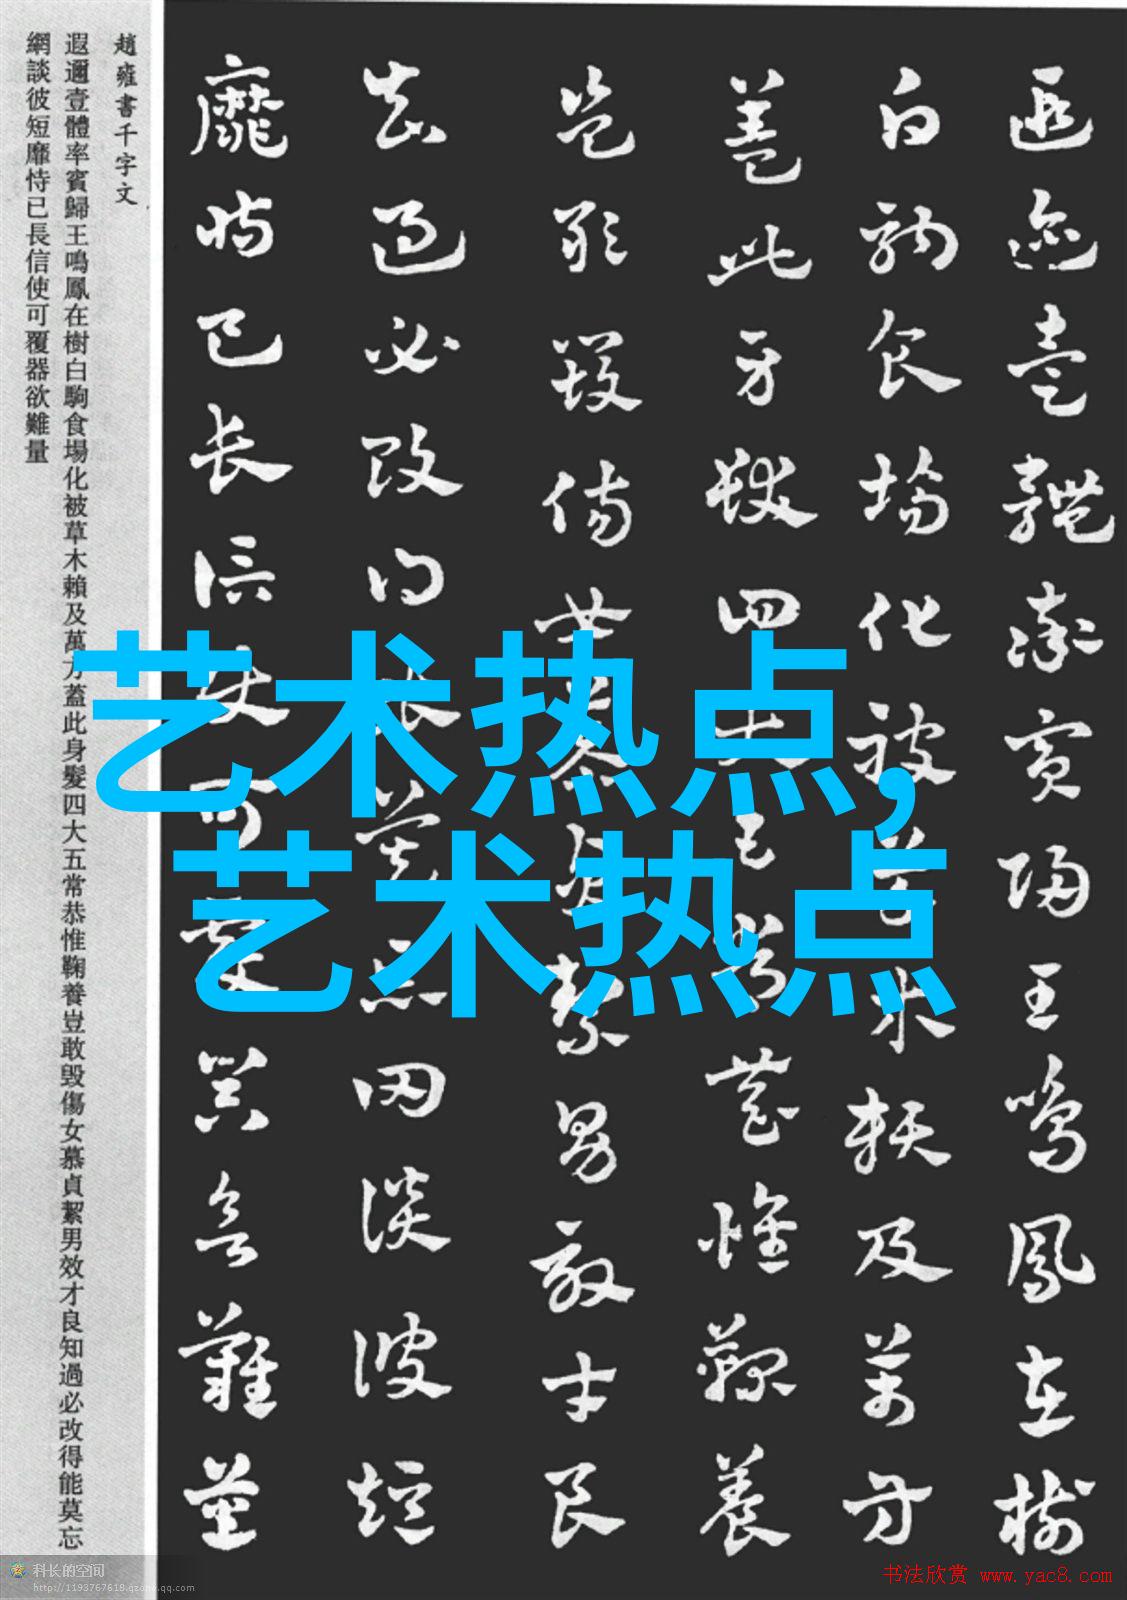 遐邇壹體率賓歸王鳴鳳在樹
白駒食場化被草木賴及萬方
蓋此身髮四大五常恭惟鞠養
豈敢毀傷女慕貞絜男效才良
知過必改得能莫忘罔談彼短
靡恃已長信使可覆器欲難量
趙雍書千字文
遐邇壹體率賓歸王鳴鳳在樹白駒食場化被草木賴及萬方蓋此身髮四大五常恭惟鞠養豈敢毀傷女慕貞絜男效才良知過必改得能莫忘
網談彼短靡恃已長信使可覆器欲難量
艺术热点,
艺术热点
科长的空间
http://1193767618.qzone.qq.com
书法欣赏 www.yac8.com